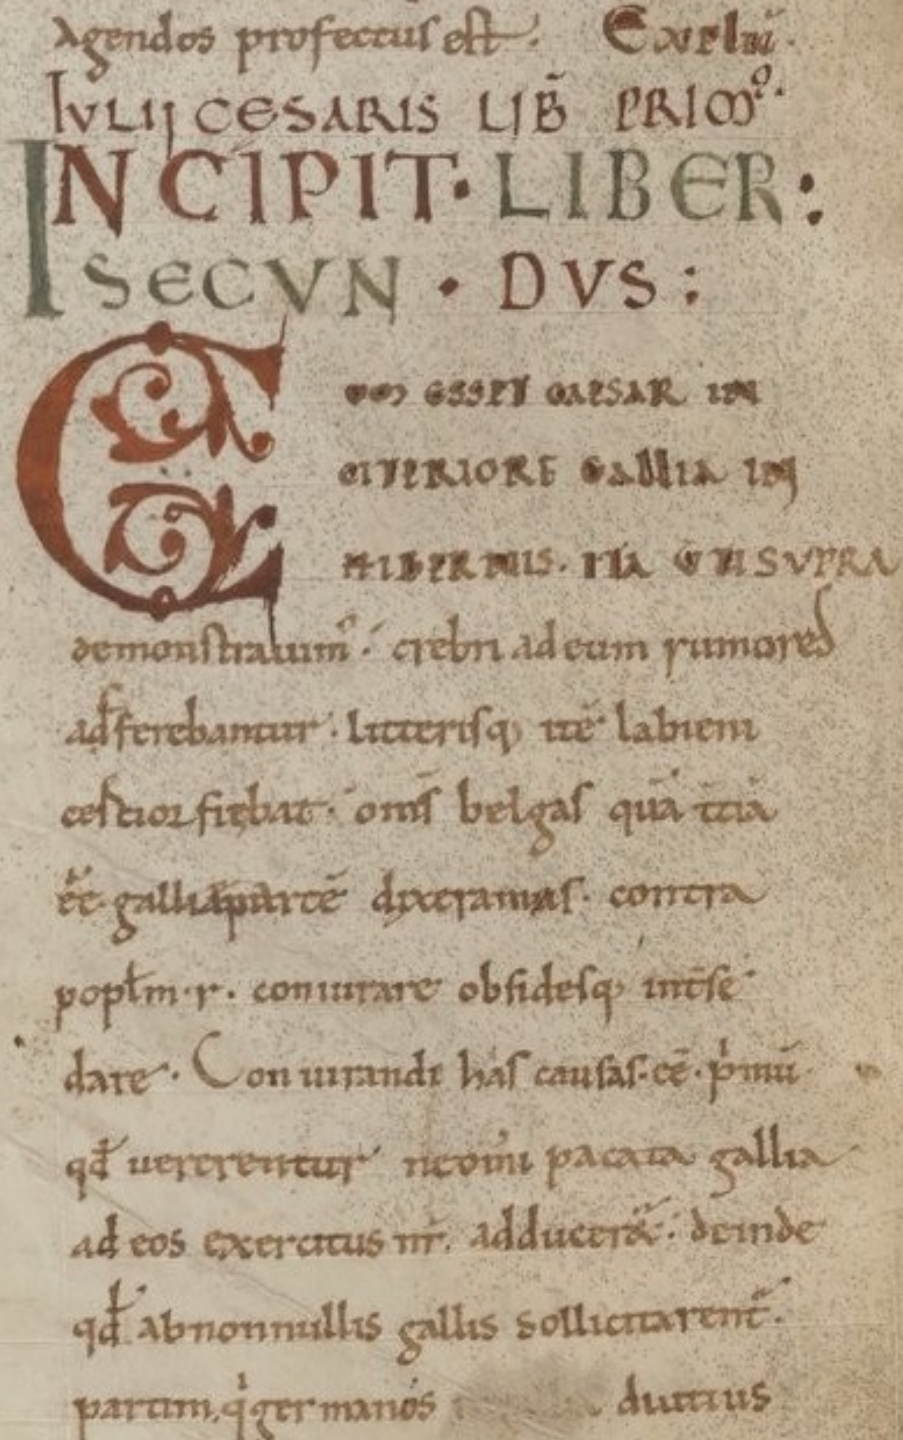 Agendos profectus est. Explic̄.
IVLII CESARIS LIB̄ PRIMꝰ.
INCIPIT · LIBER :
SECVN · DVS :
CVM ESSET CAESAR IN
CITERIORE GALLIA IN
HIBERNIS. ITA UTI SVPRA
demonstratum÷. crebri ad eum rumores
adferebantur. litterisq; itē labieni
certior fiebat. om̄s belgas quā t̄ciā
eē galliae partē dixeramus. contra
popl̄m · r · coniurare obsidesq; int̄se
dare. Coniurandi has causas. eē. p̍mū
qđ uererentur ne om̄i pacata gallia
ad eos exercitus nr̄. adduceret̄. deinde
qđ abnonnullis gallis sollicitarent̄.
partim. q̍ germanos diutius